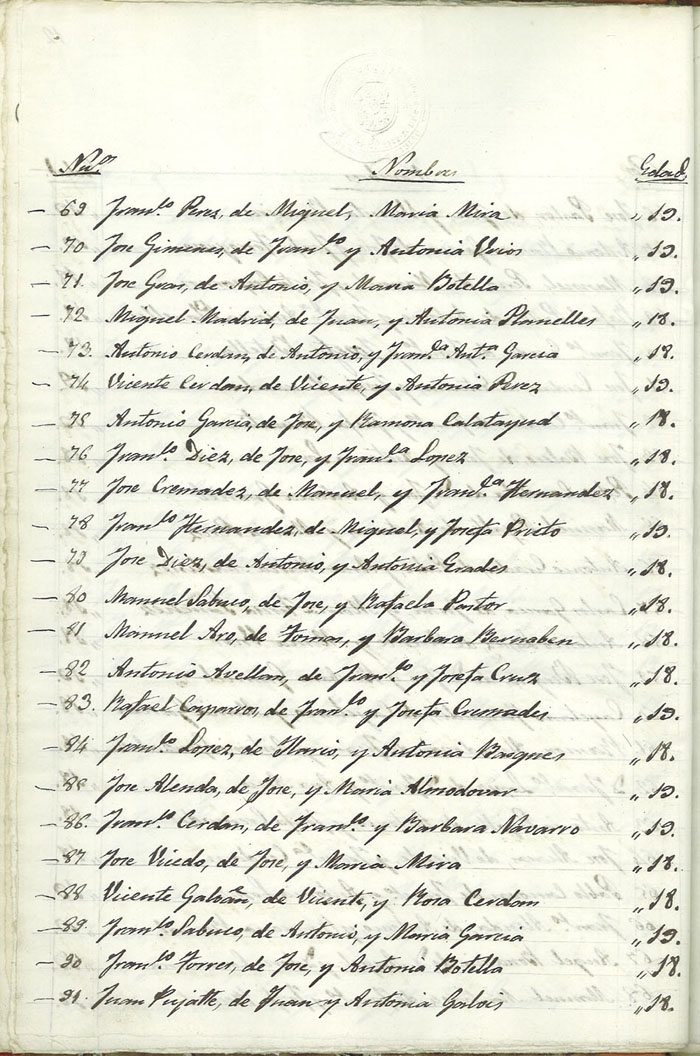 Nu.º Nombres Edad
— 69 Fran.co Perez, de Miguel, Maria Mira „ 19.
— 70 Jose Gimenes, de Fran.co y Antonia Vrios „ 19.
— 71. Jose Gras, de Antonio, y Maria Botella „ 19.
— 72 Miguel Madrid, de Juan, y Antonia Planelles „ 18.
— 73. Antonio Cerdan, de Antonio, y Fran.ca Ant.ª Garcia „ 18.
— 74 Vicente Cerdan, de Vicente, y Antonia Perez „ 19.
— 75 Antonio Garcia, de Jose, y Ramona Calatayud „ 18.
— 76 Fran.co Diez, de Jose, y Fran.ca Lopez „ 18.
— 77 Jose Cremadez, de Manuel, y Fran.ca Hernandez „ 18.
— 78 Fran.co Hernandez, de Miguel, y Josefa Prieto „ 19.
— 79 Jose Diez, de Antonio, y Antonia Grades „ 18.
— 80 Manuel Sabuco, de Jose, y Rafaela Pastor „ 18.
— 81 Manuel Aro, de Tomas, y Barbara Bernaben „ 18.
— 82 Antonio Avellan, de Fran.co y Josefa Cruz „ 18.
— 83. Rafael Caparros, de Fran.co y Josefa Cremades „ 19.
— 84 Fran.co Lopez, de Ilario, y Antonia Basques „ 18.
— 85 Jose Alenda, de Jose, y Maria Almodovar „ 19.
— 86. Fran.co Cerdan, de Fran.co y Barbara Navarro „ 19.
— 87 Jose Vicedo, de Jose, y Maria Mira „ 18.
— 88 Vicente Galvañ, de Vicente, y Rosa Cerdan „ 18.
— 89. Fran.co Sabuco, de Antonio, y Maria Garcia „ 19.
— 90 Fran.co Torres, de Jose, y Antonia Botella „ 18.
— 91. Juan Pujalte, de Juan y Antonia Galvis „ 18.